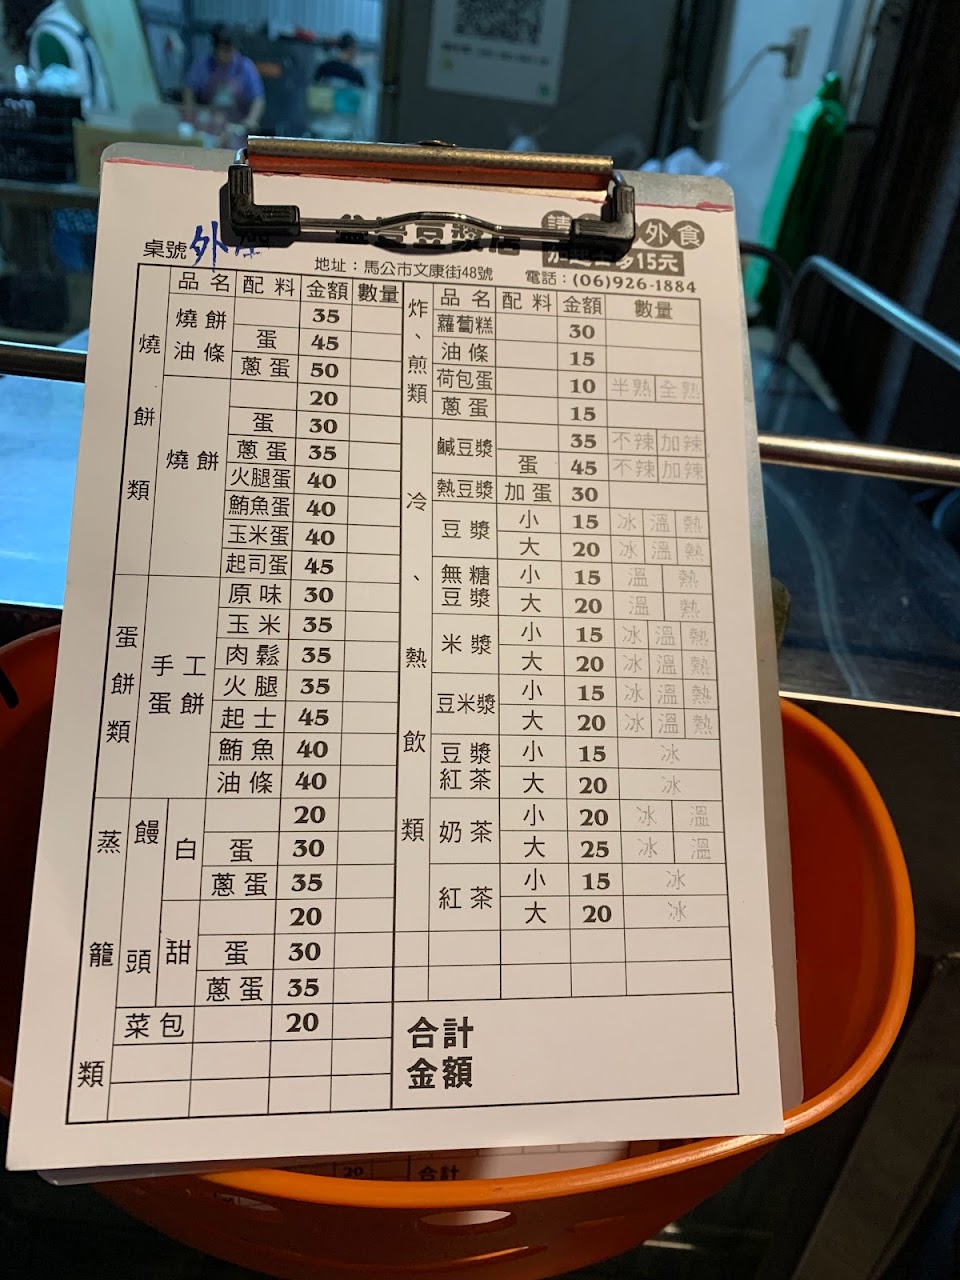 桌號 外
豆漿店
請 外食
加 15元
地址：馬公市文康街48號
電話：(06)926-1884
品名 配料 金額 數量
燒餅類
燒餅油條 35
蛋 45
蔥蛋 50
燒餅 20
蛋 30
蔥蛋 35
火腿蛋 40
鮪魚蛋 40
玉米蛋 40
起司蛋 45
蛋餅類
手工蛋餅
原味 30
玉米 35
肉鬆 35
火腿 35
起士 45
鮪魚 40
油條 40
蒸籠類
饅頭
白 20
蛋 30
蔥蛋 35
甜 20
蛋 30
蔥蛋 35
菜包 20
品名 配料 金額 數量
炸、煎類
蘿蔔糕 30
油條 15
荷包蛋 10 半熟 全熟
蔥蛋 15
冷、熱飲類
鹹豆漿 35 不辣 加辣
蛋 45 不辣 加辣
熱豆漿 加蛋 30
豆漿 小 15 冰 溫 熱
大 20 冰 溫 熱
無糖豆漿 小 15 溫 熱
大 20 溫 熱
米漿 小 15 冰 溫 熱
大 20 冰 溫 熱
豆米漿 小 15 冰 溫 熱
大 20 冰 溫 熱
豆漿紅茶 小 15 冰
大 20 冰
奶茶 小 20 冰 溫
大 25 冰 溫
紅茶 小 15 冰
大 20 冰
合計
金額
20 合計